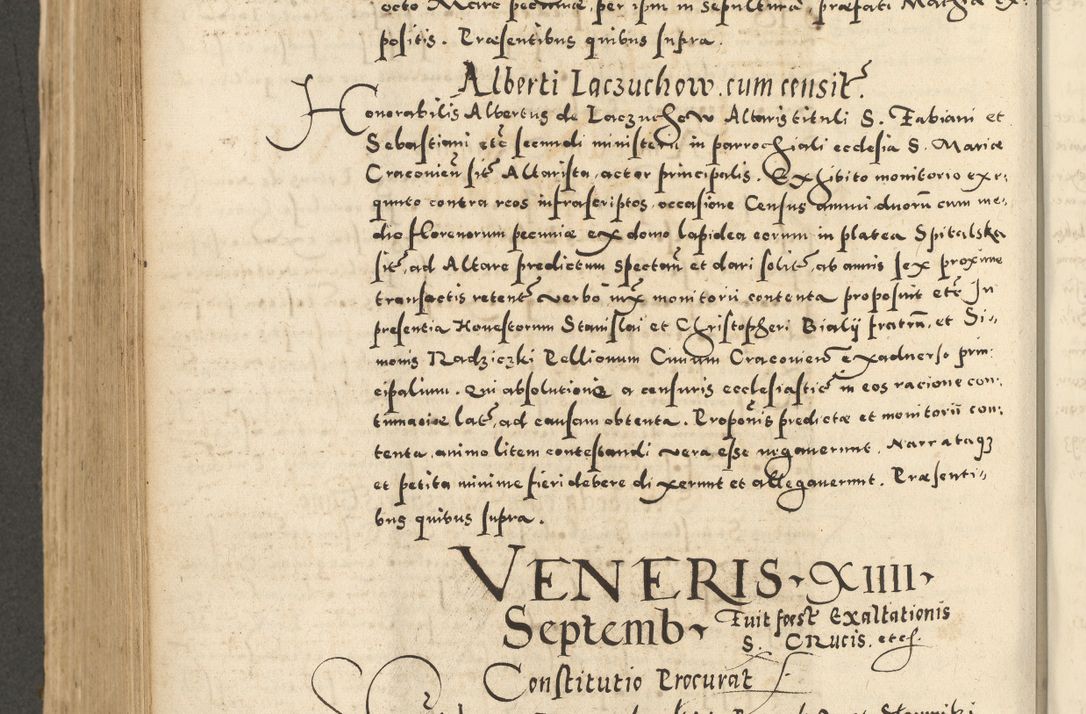 octo Marc pecuniæ, per ipm in sepultura præfati Mathia ex-
positis. Præsentibus quibus supra.
Alberti Laczuchow. cum censit.
Honorabilis Albertus de Laczuchow Altaris tituli S. Fabiani et
Sebastiani etc secundi ministerii in parrochiali ecclesia S. Mariæ
Cracovien sit Altarista, actor principalis. Exhibito monitorio exe-
quuto contra reos infrascriptos, occasione Census annui duorum cum me-
dio florenorum pecuniæ ex domo lapidea eorum in platea Spitalska
sit, ad Altare predictum spectan et dari solit, ab annis sex proxime
transactis retent verbo iux monitorii contenta proposuit etc In
presentia Honestorum Stanislai et Christopheri Bialij fratrum, et Si-
monis Radziczki Pellionum Civium Cracovien ex adverso prin-
cipalium. Qui absolutione a censuris ecclesiastic in eos racione con-
tumaciæ lat, ad causam obtenta. Proponis predictæ et monitorii con-
tenta, animo litem contestandi vera esse negaverunt. Narrataqз
et petita minime fieri debere dixerunt et allegaverunt. Præsenti-
bus quibus supra.
VENERIS XIIII
Septemb Fuit foest Exaltationis
S. CRUCIS. etc.
Constitutio Procurat